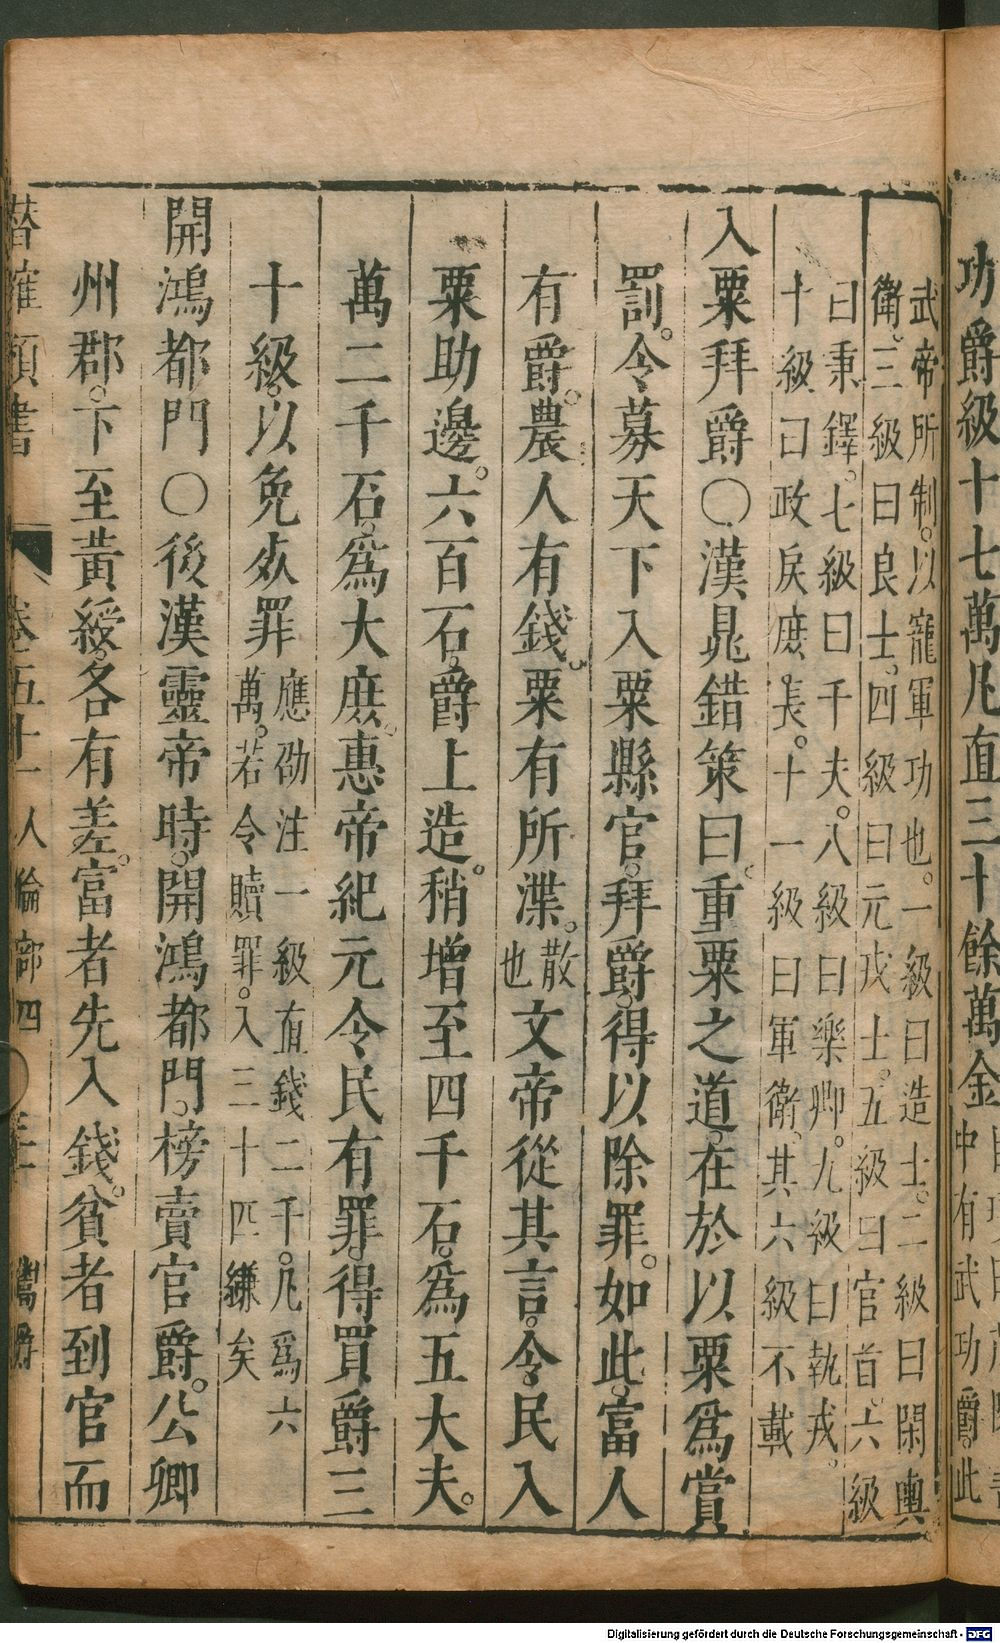 功爵級十七萬凡直三十餘萬金
中有武功爵。此
武帝所制。以寵軍功也。一級曰造士。二級曰閑輿
衛。三級曰良士。四級曰元戎士。五級曰官首。六級
曰秉鐸。七級曰千夫。八級曰樂卿。九級曰執戎。
十級曰政戾庶長。十一級曰軍衛。其六級不載
入粟拜爵〇漢晁錯策曰。重粟之道。在於以粟爲賞
罰。令募天下入粟縣官。拜爵。得以除罪。如此。富人
有爵。農人有錢。粟有所渫。
散
也
文帝從其言。令民入
粟助邊。六百石。爵上造。稍增至四千石。爲五大夫。
萬二千石。爲大庶。惠帝紀元令民有罪。得買爵三
十級。以免死罪
應劭注一級直錢二千。凡爲六
萬。若令贖罪。入三十匹縑矣
開鴻都門〇後漢靈帝時。開鴻都門。榜賣官爵。公卿
州郡。下至黃綬。各有差。富者先入錢。貧者到官而
潛確類書
卷五十一
人倫部四
鬻爵
Digitalisierung gefördert durch die Deutsche Forschungsgemeinschaft - DFG